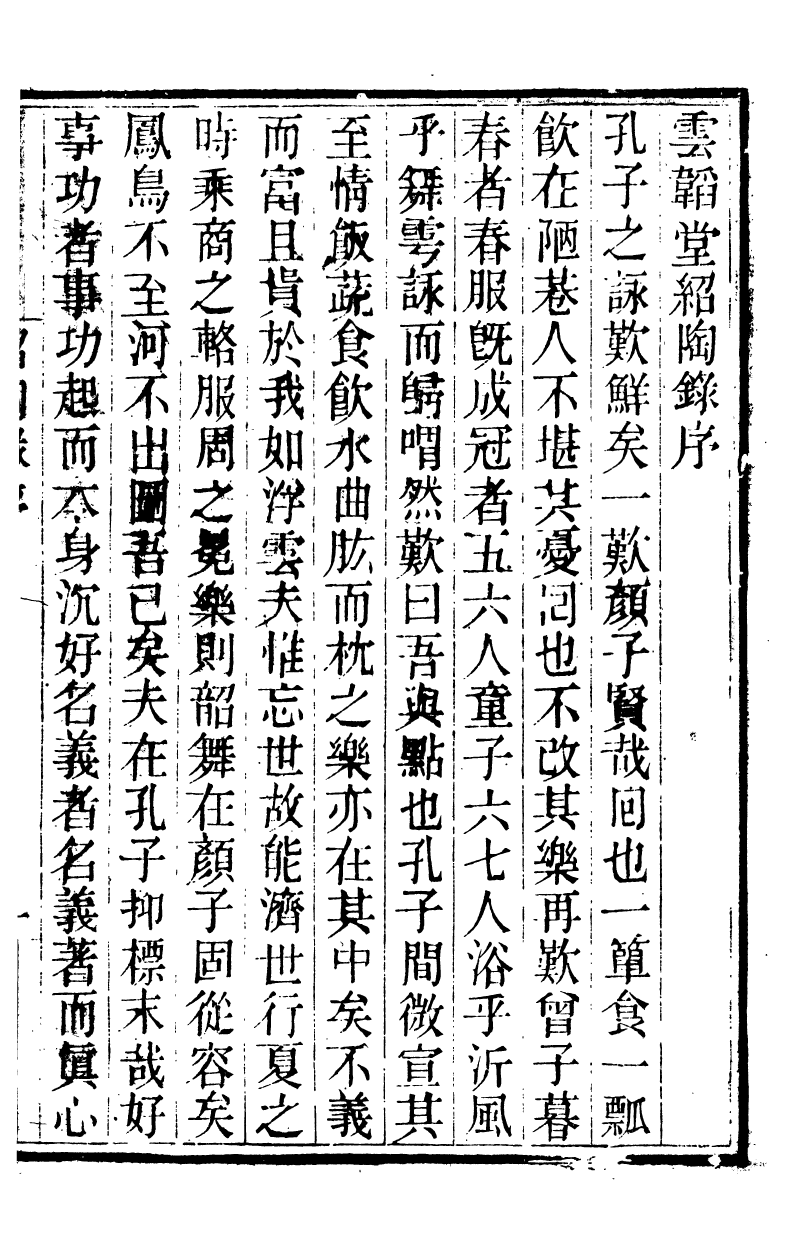 雲韜堂紹陶錄序
孔子之詠歎鮮矣一歎顏子賢哉囘也一簞食一瓢
飮在陋巷人不堪其憂囘也不改其樂再歎曾子暮
春者春服旣成冠者五六人童子六七人浴乎沂風
乎舞雩詠而歸喟然歎曰吾與點也孔子間微宣其
至情飯蔬食飮水曲肱而枕之樂亦在其中矣不義
而富且貴於我如浮雲夫惟忘世故能濟世行夏之
時乘商之輅服周之冕樂則韶舞在顏子固從容矣
鳳鳥不至河不出圖吾已矣夫在孔子抑標末哉好
事功者事功起而本身沉好名義者名義著而眞心